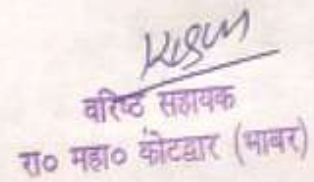 वरिष्ठ सहायक
रा० महा० कोटद्वार (भाबर)